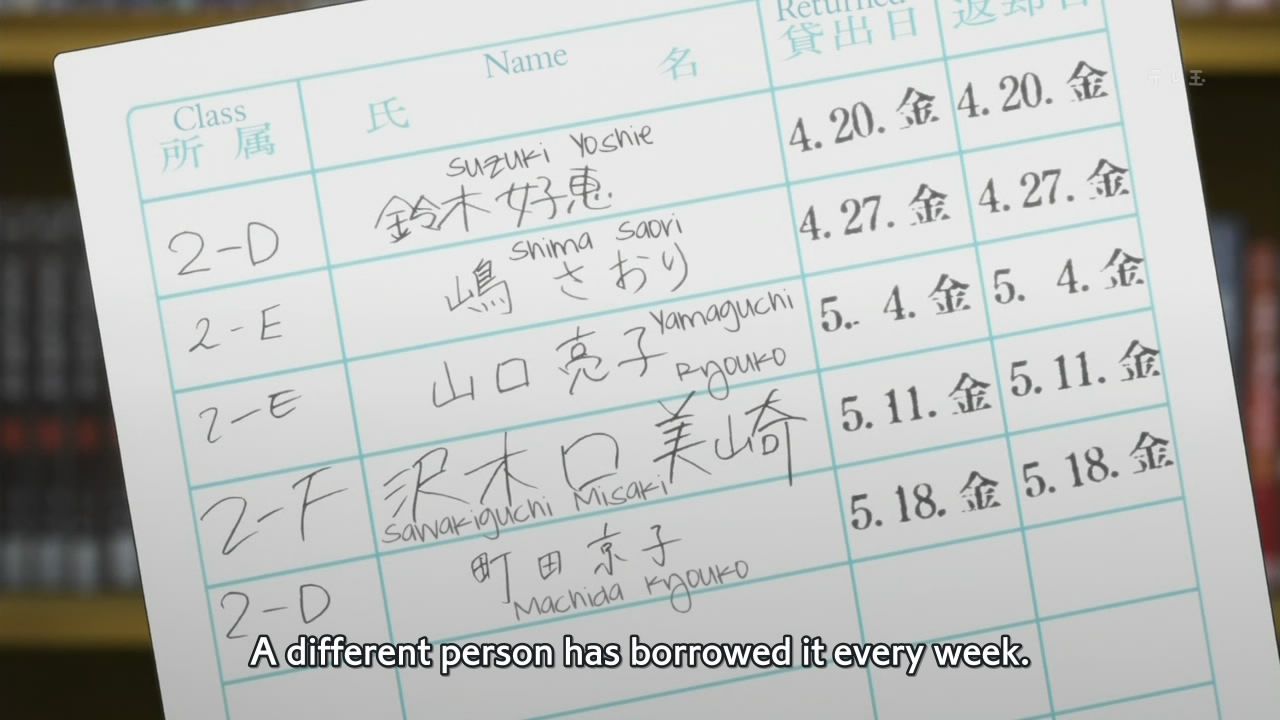 Class
所属
Name
氏 名
Returned
貸出日
返却日
2-D
Suzuki Yoshie
鈴木好恵
4. 20. 金
4. 20. 金
2-E
Shima Saori
嶋 さおり
4. 27. 金
4. 27. 金
2-E
山口 亮子
Yamaguchi
Ryouko
5. 4. 金
5. 4. 金
2-F
沢木口 美崎
Sawakiguchi Misaki
5. 11. 金
5. 11. 金
2-D
町田 京子
Machida Kyouko
5. 18. 金
5. 18. 金
A different person has borrowed it every week.